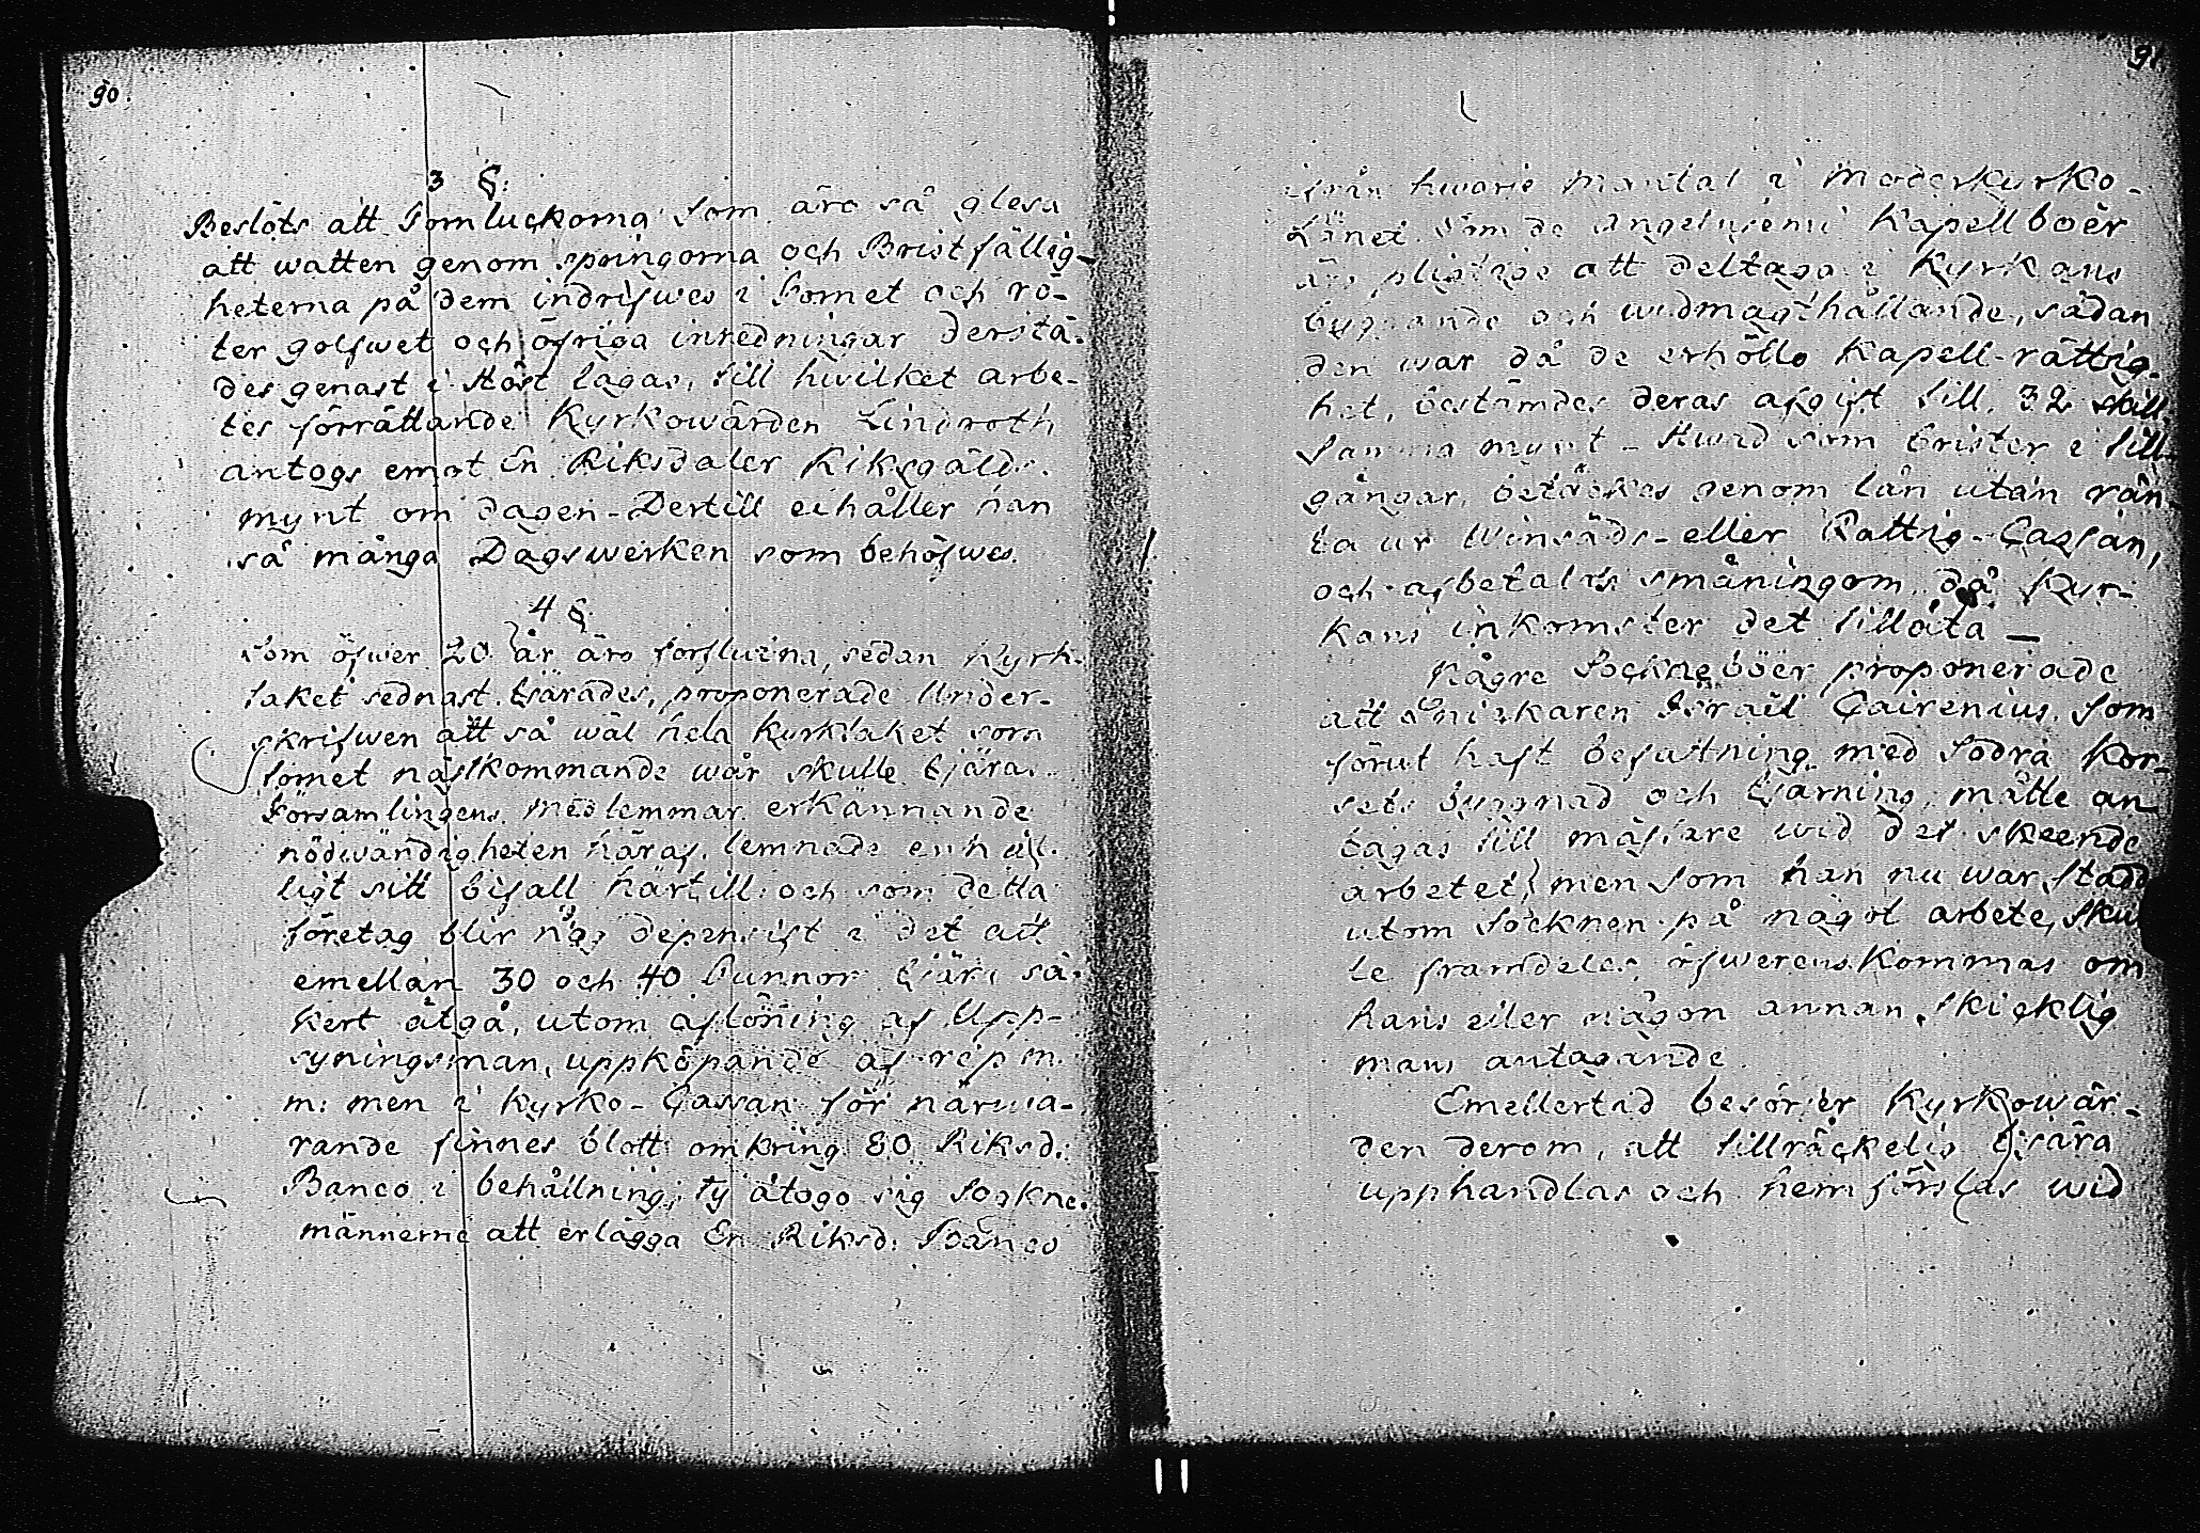 90.
3 §:
Beslöts att Tornluckorna som äro så glesa
att watten genom springorna och Bristfällig-
heterna på dem indrifwes i Tornet och rö-
ter golfwet och öfriga inredningar derstä-
des genast i Höst lagas, till hwilket arbe-
tes förrättande Kyrkowärden Lindroth
antogs emot En Riksdaler Riksgälds.
mynt om dagen - Dertill erhåller han
så många Dagswerken som behöfwes.
4 §
Som öfwer 20 år äro förflutna, sedan Kyrk-
taket sednast tjärades, proponerade Under-
skrifwen att så wäl hela kyrktaket som
tornet nästkommande wår skulle tjäras.
Församlingens medlemmar erkännande
nödwändigheten häraf, lemnade enhäl-
ligt sitt bifall härtill och som detta
företag blir nog depensift i det att
emellan 30 och 40 Tunnor tjära sä-
kert åtgå, utom aflöning af Upp-
syningsman, uppköpande af rep m.
m: men i Kyrko-Cassan för närwa-
rande finnes blott omkring 80 Riksd:
Banco i behållning; ty åtogo sig Sockne-
männerne att erlägga En Riksd: Banco
91.
ifrån hwarje Mantal i Moderkyrko-
Länet som de Kapellboer
äro pligtige att deltaga i Kyrkans
byggande och widmagthållande, sådan
den war då de erhöllo Kapell-rättig-
het, bestämdes deras afgift till 32 skill
Samma mynt - Hwad som brister i till-
gångar, betäckes genom lån utan rän-
ta ur Winsäds- eller Fattig-Cassan,
och afbetalas småningom då Kyr-
kans inkomster det tillåta —
Någre Sockneboer proponerade
att Snickaren Israël Cairenius som
förut haft befattning med Södra Kor-
sets byggnad och tjärning, måtte an
tagas till mästare wid det skeende
arbetet, men som han nu war stadd
utom Socknen på något arbete, skul
le framdeles öfwerenskommas om
hans eller någon annan skicklig
mans antagande
Emellertid besörjer Kyrkowär-
den derom, att tillräckelig tjära
upphandlas och hemförslas wid